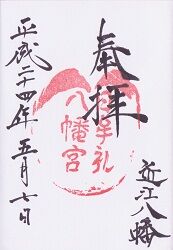 近江八幡
奉拝
牟礼
八幡宮
平成二十四年五月七日